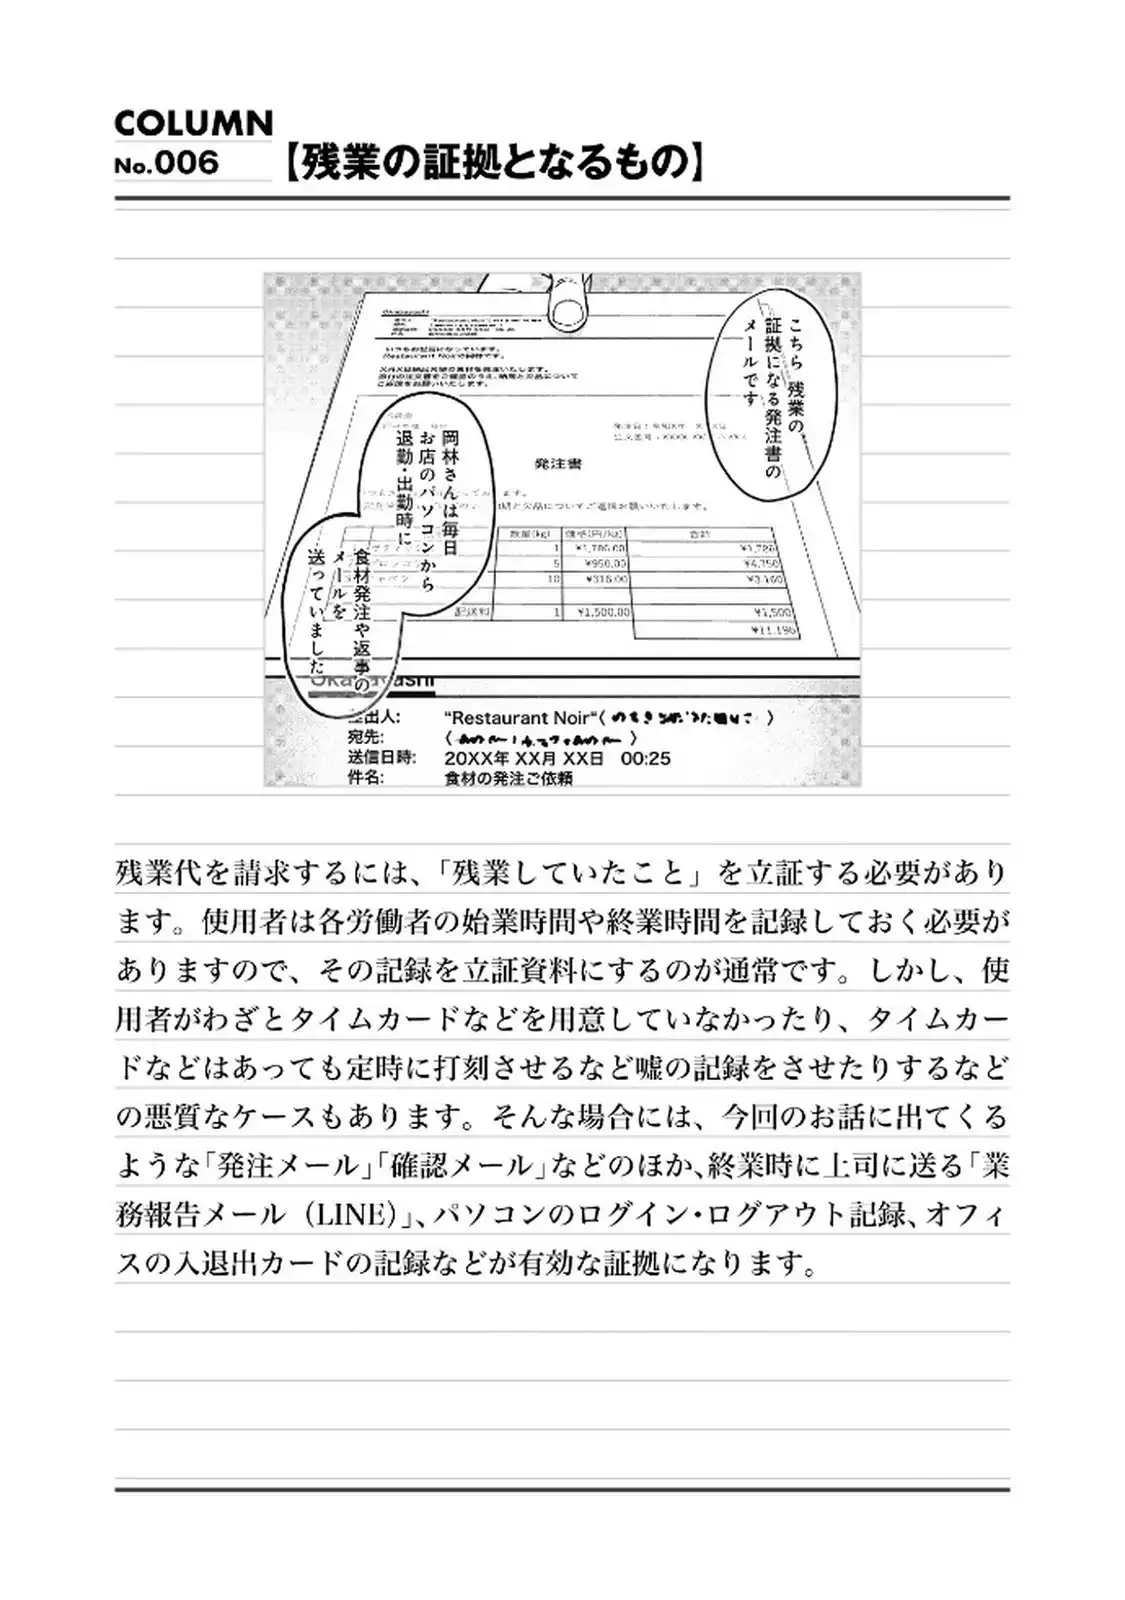 COLUMN
No.006
【残業の証拠となるもの】
こちら 残業の
証拠になる発注書の
メールです
いつもお世話になっています。
発注書
岡林さんは毎日
お店のパソコンから
退勤・出勤時に
食材発注や返事の
メールを
送っていました
数量(kg) 価格(円/kg) 合計
1 ¥1,786.00 ¥1,786
5 ¥950.00 ¥4,750
10 ¥316.00 ¥3,160
配送料 1 ¥1,500.00 ¥1,500
¥11,196
差出人: "Restaurant Noir"
宛先:
送信日時: 20XX年 XX月 XX日 00:25
件名: 食材の発注ご依頼
残業代を請求するには、「残業していたこと」を立証する必要があり
ます。使用者は各労働者の始業時間や終業時間を記録しておく必要が
ありますので、その記録を立証資料にするのが通常です。しかし、使
用者がわざとタイムカードなどを用意していなかったり、タイムカー
ドなどはあっても定時に打刻させるなど嘘の記録をさせたりするなど
の悪質なケースもあります。そんな場合には、今回のお話に出てくる
ような「発注メール」「確認メール」などのほか、終業時に上司に送る「業
務報告メール（LINE）」、パソコンのログイン・ログアウト記録、オフィ
スの入退出カードの記録などが有効な証拠になります。